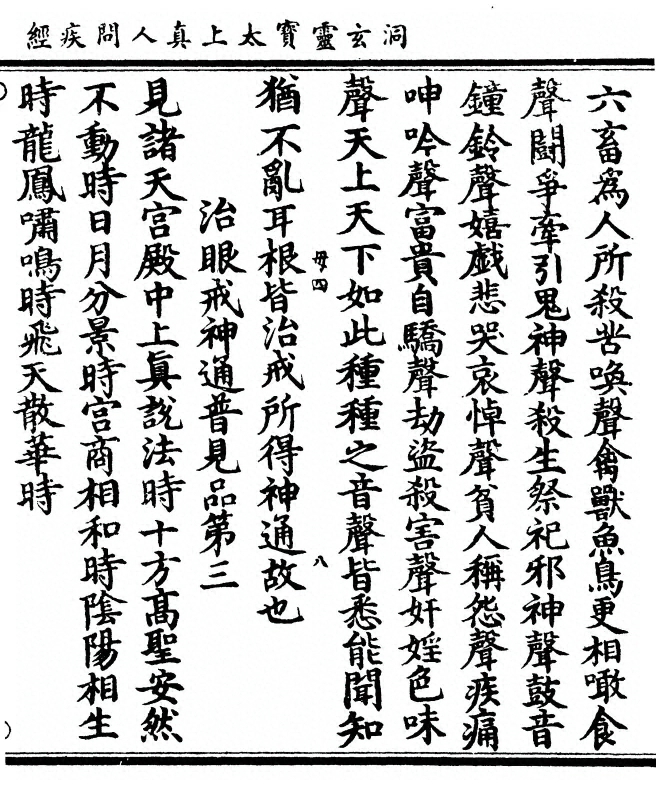 洞玄靈寶太上真人問疾經
六畜為人所殺苦喚聲禽獸魚鳥更相噉食
聲鬪爭牽引鬼神聲殺生祭祀邪神聲鼓音
鐘鈴聲嬉戲悲哭哀悼聲貧人稱怨聲疾痛
呻吟聲富貴自驕聲劫盜殺害聲奸婬色味
聲天上天下如此種種之音聲皆悉能聞知
毋四
八
猶不亂耳根皆治戒所得神通故也
治眼戒神通普見品第三
見諸天宮殿中上真說法時十方髙聖安然
不動時日月分景時宮商相和時陰陽相生
時龍鳳嘯鳴時飛天散華時